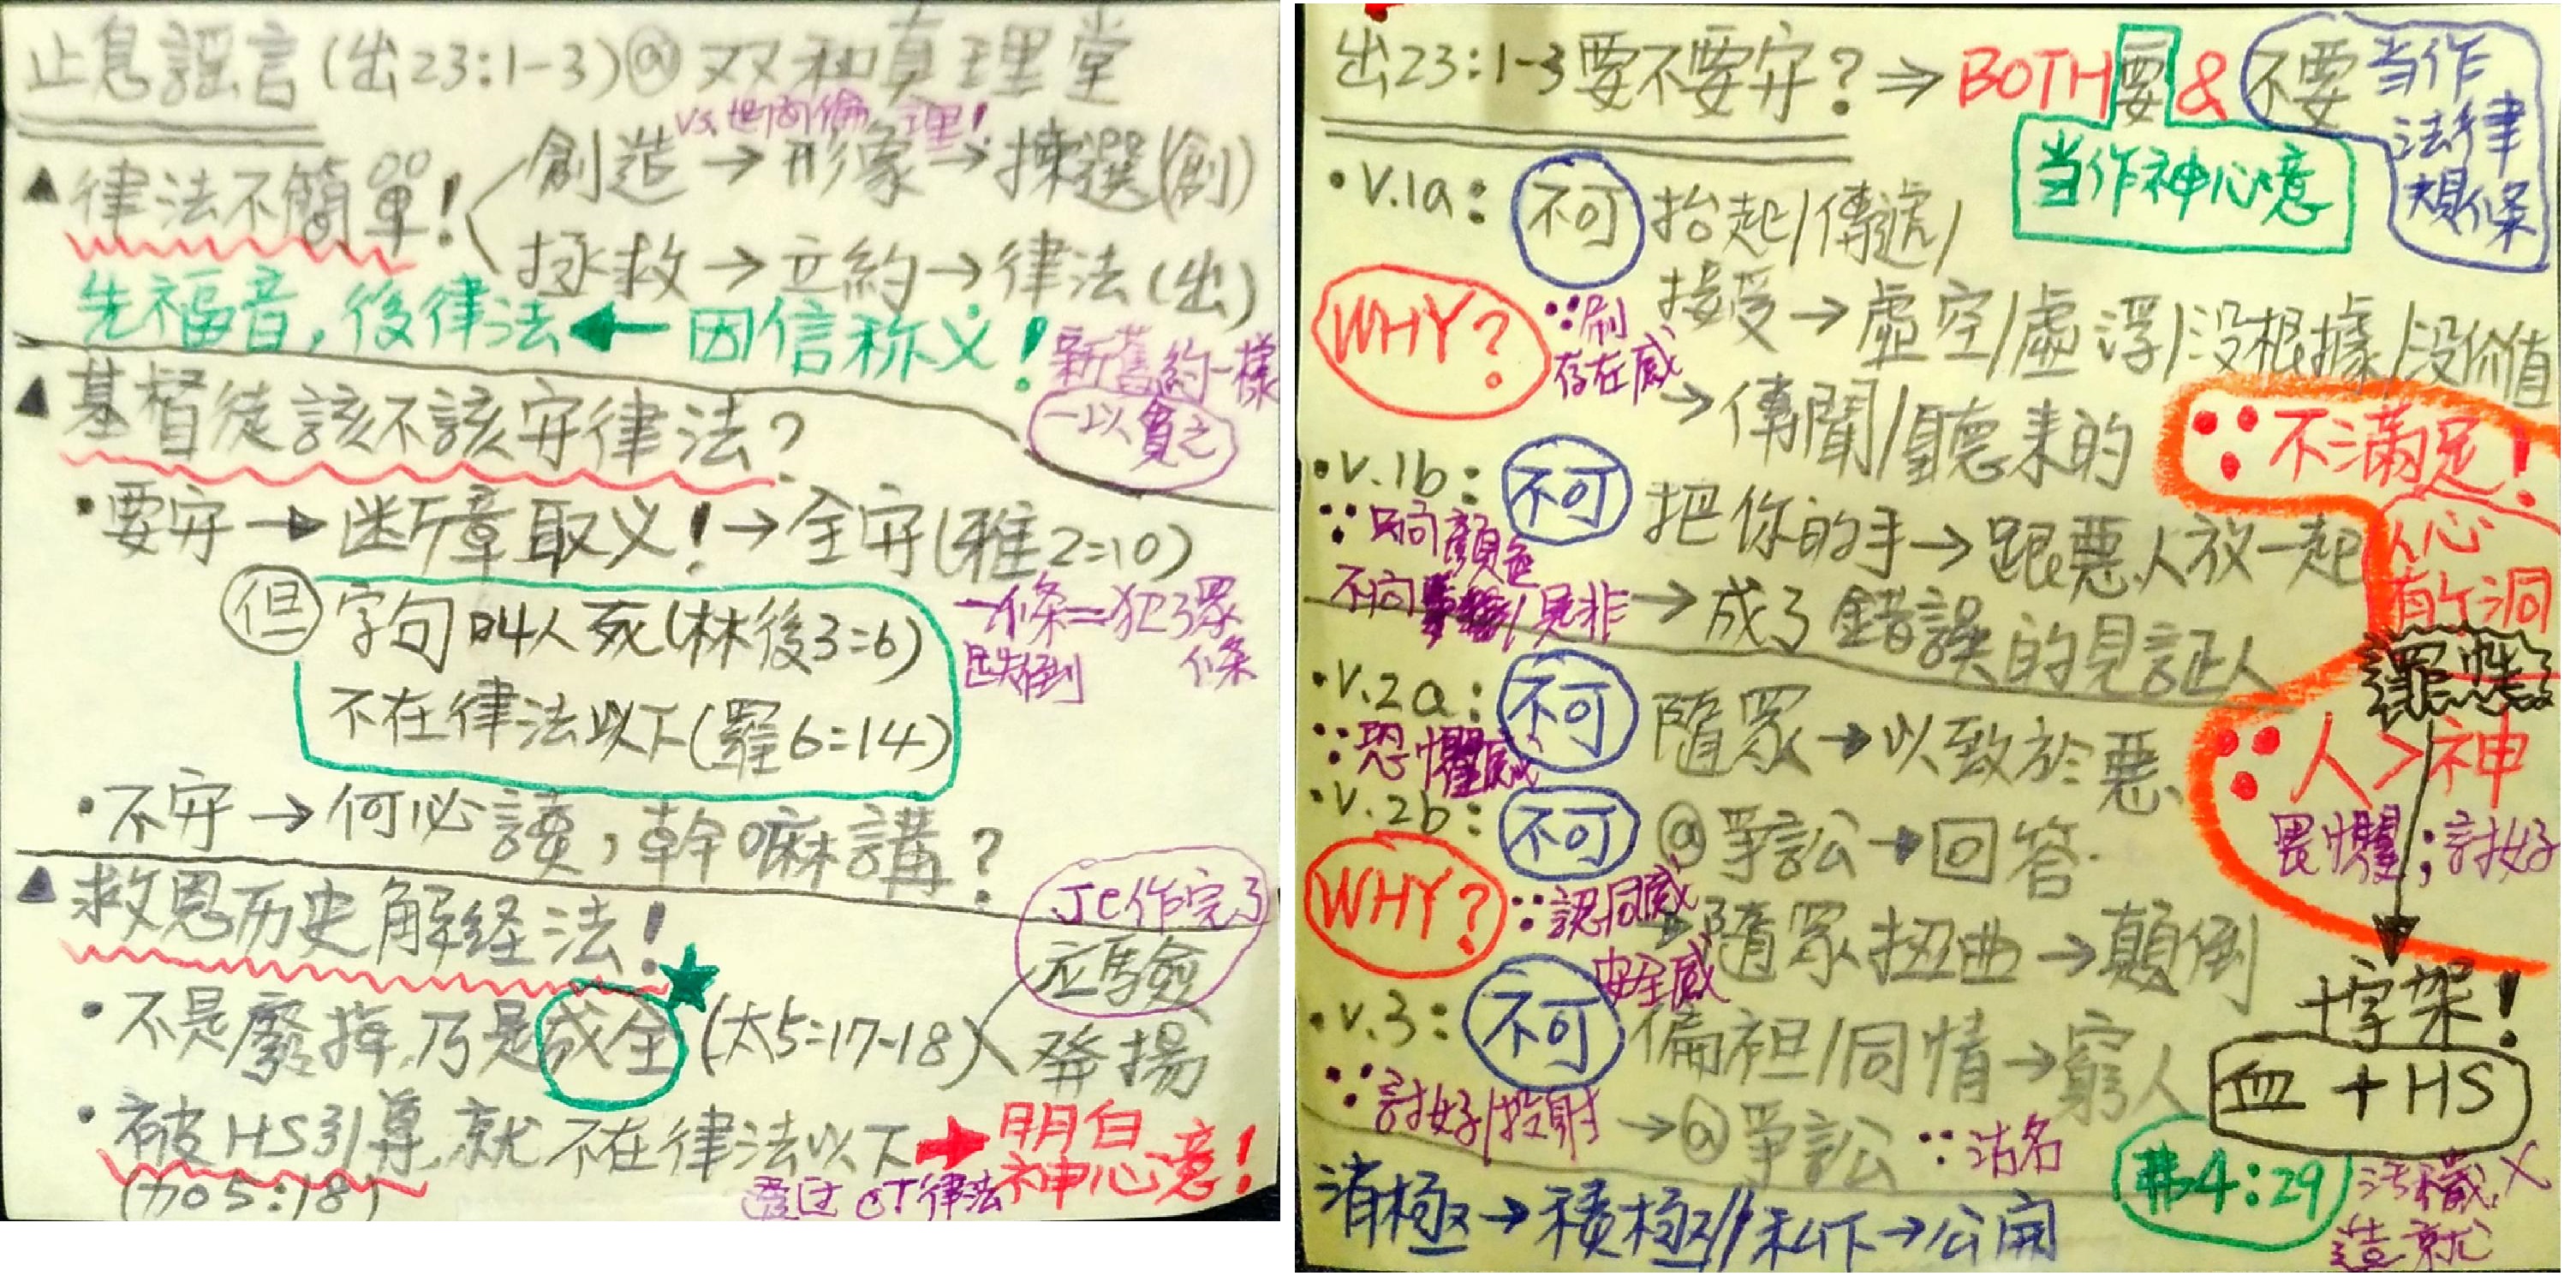 止息謠言(出23:1-3)@双和真理堂
vs.世间倫理!
▲律法不簡單!
創造→形象→揀選(創)
拯救→立約→律法(出)
先福音,後律法←因信称义!
新舊約一樣
一以貫之
▲基督徒該不該守律法?
•要守→断章取义!→全守(雅2:10)
一條=犯了眾條
跌倒
但 字句叫人死(林後3:6)
不在律法以下(羅6:14)
•不守→何必讀,幹嘛講?
▲救恩历史解经法!
JC作完了
应驗
•不是廢掉,乃是成全(太5:17-18)
發揚
•被HS引導,就不在律法以下→明白神心意!
(加5:18)
透过OT律法
出23:1-3要不要守?⇒BOTH要&不要
当作神心意
当作法律規條
•v.1a:不可抬起/傳遞/
接受→虛空/虛浮/没根據/没价值
WHY?
∵刷存在感
→傳聞/聽来的
∵不滿足!
人心有个洞
•v.1b:不可把你的手→跟惡人放一起
∵只向顏色
不向 是非
→成了錯誤的見証人
罪性
•v.2a:不可隨眾→以致於惡
∵恐懼感
∵人>神
畏懼;討好
•v.2b:不可@爭訟→回答
WHY?
∵認同感
安全感
→隨眾扭曲→顛倒
十字架!
血+HS
•v.3:不可偏袒/同情→窮人
∵討好/投射
→@爭訟 ∵沽名
消極→積極//私下→公開
弗4:29
污穢X
造就